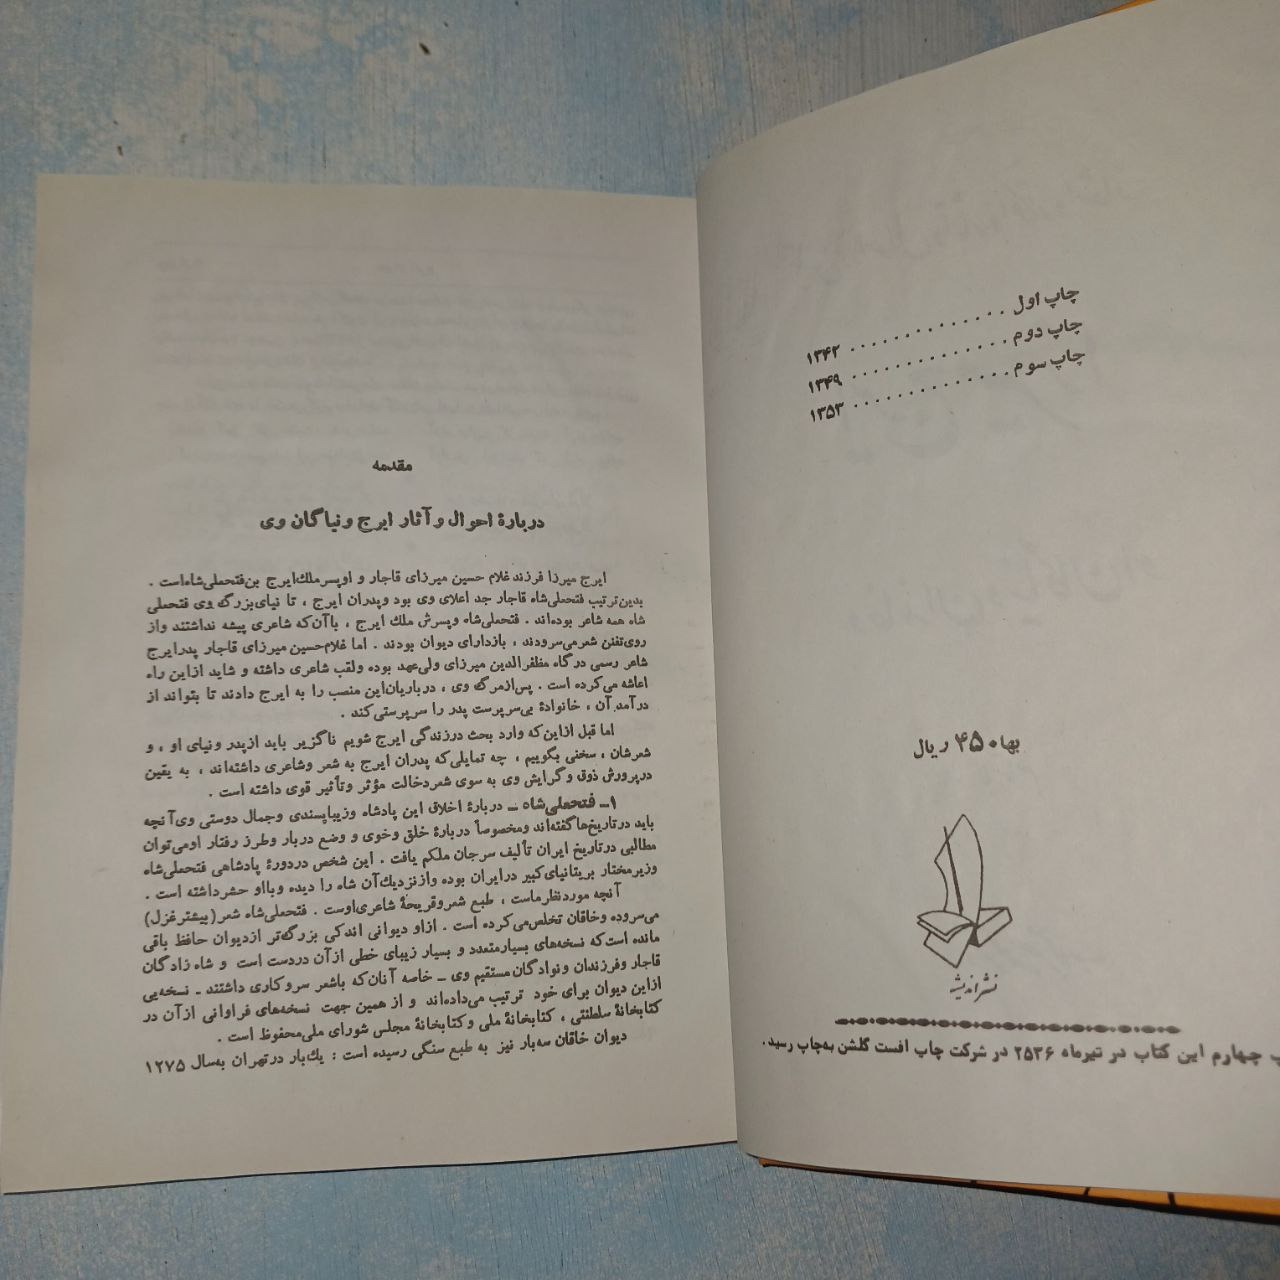 چاپ اول . . . . . . . . . . . . . . ۱۳۴۲
چاپ دوم . . . . . . . . . . . . . . ۱۳۴۹
چاپ سوم . . . . . . . . . . . . . . ۱۳۵۳
بها ۴۵۰ ریال
نشر اندیشه
چهارم این کتاب در تیرماه ۲۵۳۶ در شرکت چاپ افست گلشن به‌چاپ رسید.
مقدمه
دربارهٔ احوال و آثار ایرج و نیاگان وی
ایرج میرزا فرزند غلام حسین میرزای قاجار و او پسر ملك‌ایرج بن‌فتحعلی‌شاه‌است .
بدین‌ترتیب فتحعلی‌شاه قاجار جد اعلای وی بود و پدران ایرج ، تا نیای‌بزرگ وی فتحعلی
شاه همه شاعر بوده‌اند . فتحعلی‌شاه و پسرش ملك ایرج ، با آن‌که شاعری پیشه نداشتند و از
روی‌تفنن شعر می‌سرودند ، باز دارای دیوان بودند . اما غلام‌حسین میرزای قاجار پدر ایرج
شاعر رسمی درگاه مظفرالدین میرزای ولی‌عهد بوده و لقب شاعری داشته و شاید از این راه
اعاشه می‌کرده است . پس‌ازمرگ وی ، درباریان‌این منصب را به ایرج دادند تا بتواند از
درآمد آن ، خانوادهٔ بی‌سرپرست پدر را سرپرستی‌کند .
اما قبل ازاین‌که وارد بحث درزندگی ایرج شویم ناگزیر باید ازپدر ونیای او ، و
شعرشان ، سخنی بگوییم ، چه تمایلی‌که پدران ایرج به شعر وشاعری داشته‌اند ، به یقین
درپرورش ذوق وگرایش وی به سوی شعردخالت مؤثر وتأثیر قوی داشته است .
۱ـ فتحعلی‌شاه ـ دربارهٔ اخلاق این پادشاه وزیباپسندی وجمال دوستی وی‌آنچه
باید درتاریخ‌ها گفته‌اند ومخصوصاً دربارهٔ خلق وخوی و وضع دربار وطرز رفتار اومی‌توان
مطالبی درتاریخ ایران تألیف سرجان ملکم یافت . این شخص دردورهٔ پادشاهی فتحعلی‌شاه
وزیرمختار بریتانیای‌کبیر درایران بوده وازنزدیك‌آن شاه را دیده وبااو حشرداشته است .
آنچه موردنظرماست ، طبع شعروقریحهٔ شاعری‌اوست . فتحعلی‌شاه شعر (بیشترغزل)
می‌سروده وخاقان تخلص‌می‌کرده است . ازاو دیوانی اندکی بزرگ‌تر ازدیوان حافظ باقی
مانده است‌که نسخه‌های بسیارمتعدد و بسیار زیبای خطی ازآن دردست است و شاه زادگان
قاجار وفرزندان ونوادگان مستقیم وی ـ خاصه آنان‌که باشعر سروکاری داشتند ـ نسخه‌یی
ازاین دیوان برای خود ترتیب می‌داده‌اند و از همین جهت نسخه‌های فراوانی ازآن در
کتابخانهٔ سلطنتی ، کتابخانهٔ ملی وکتابخانهٔ مجلس شورای ملی‌محفوظ است .
دیوان خاقان سه‌بار نیز به طبع سنگی رسیده است : یك‌بار درتهران به‌سال ۱۲۷۵